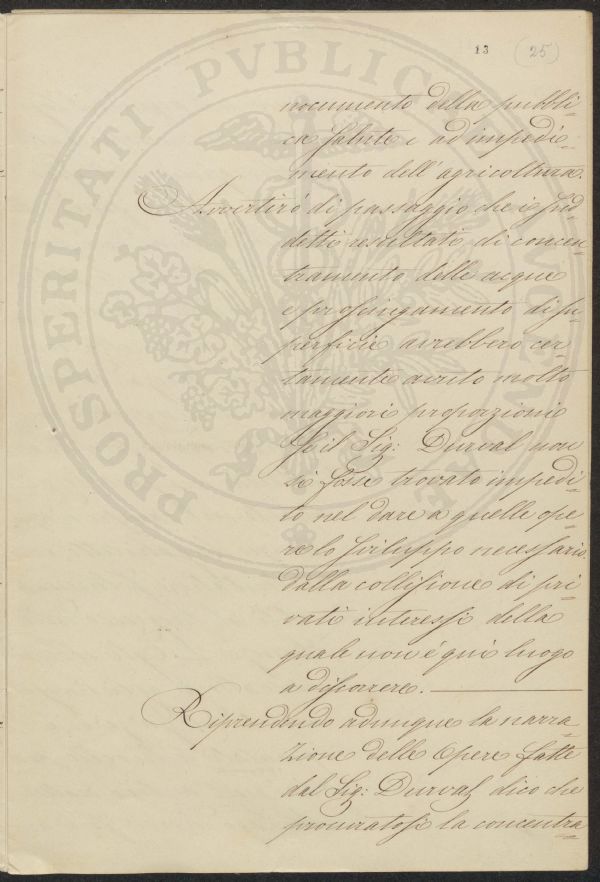 13 (25)
nocumento della pubbli=
ca salute e ad impedi=
mento dell'agricoltura.
Avvertirò di passaggio che i sud=
detti resultati, di concen=
tramento delle acque
e prosciugamento di su=
perficie avrebbero cer=
tamente avuto molto
maggiori proporzioni
se il Sig: Durval non
si fosse trovato impedi=
to nel dare a quelle ope=
re lo sviluppo necessario
dalla collisione di pri=
vati interessi della
quale non è quì luogo
a discorrere.
Riprendendo adunque la narra=
zione delle Opere fatte
dal Sig: Durval dico che
procuratosi la concentra=
PROSPERITATI PVBLICAE